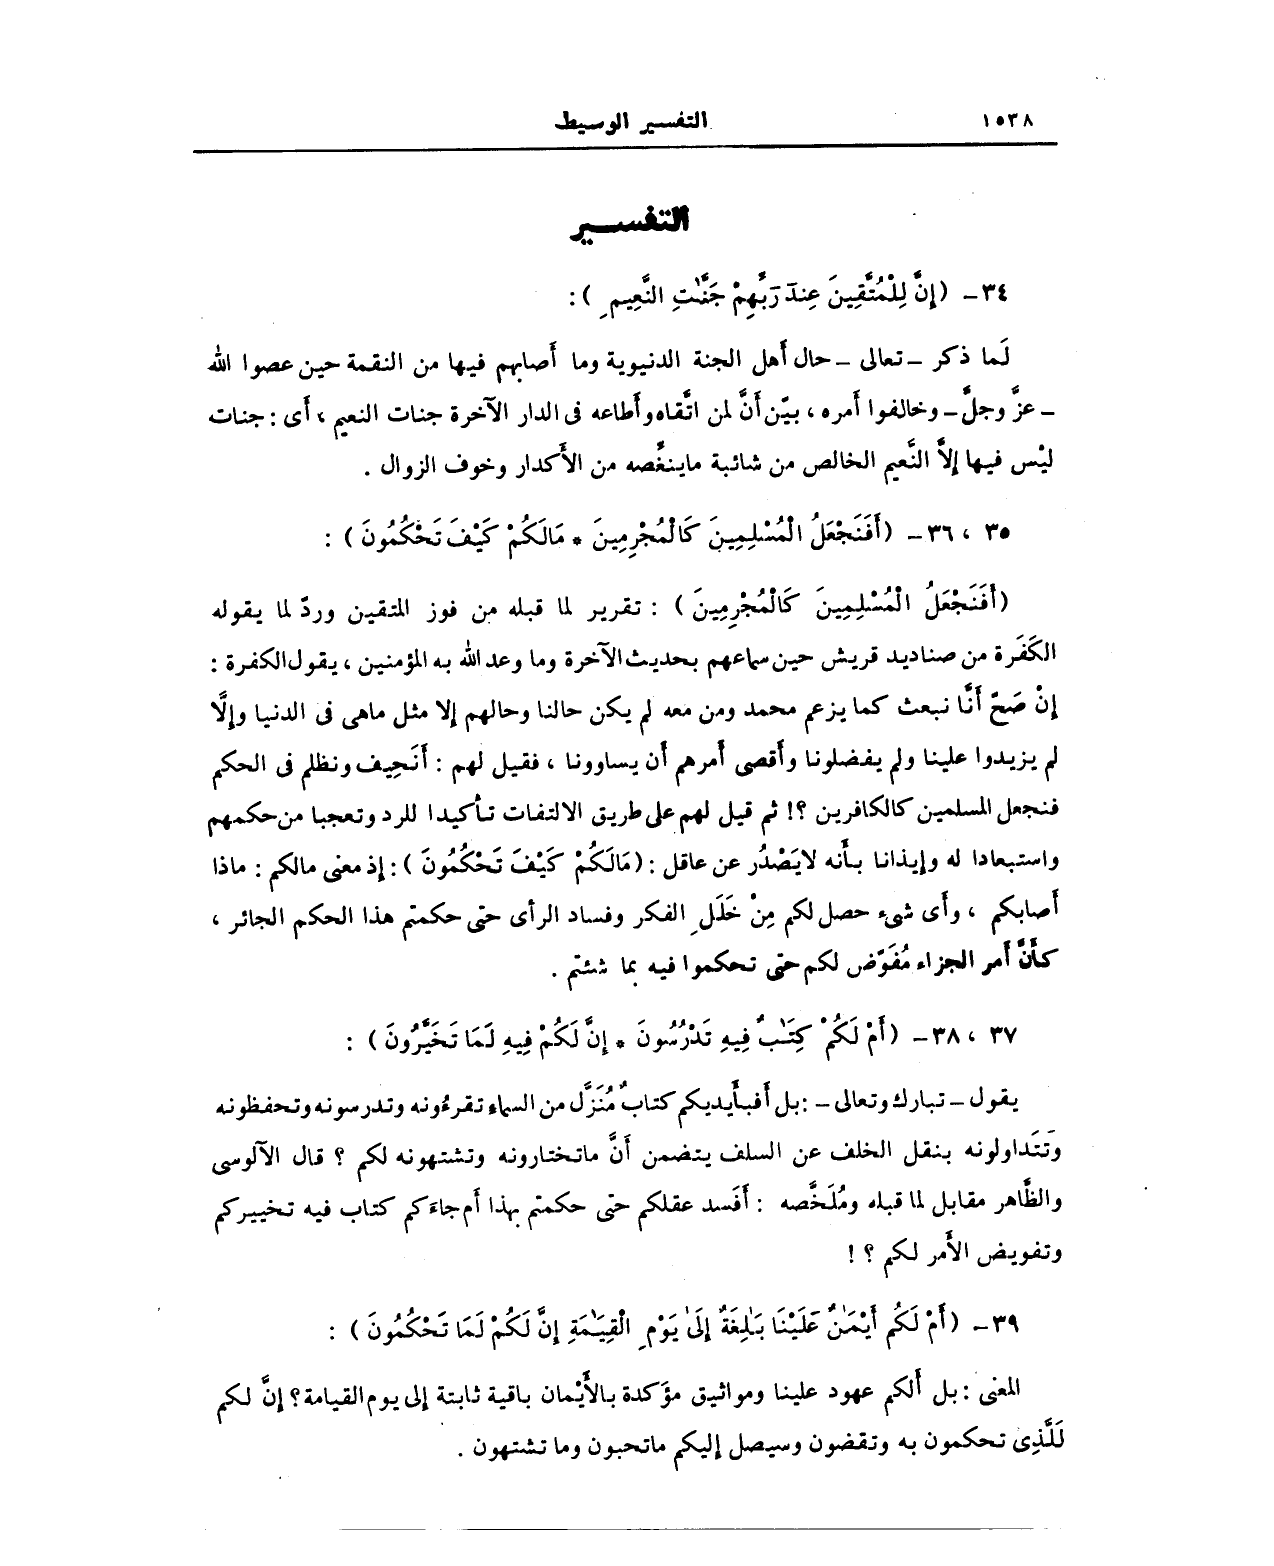 ١٥٣٨
التفسير الوسيط
التفسير
٣٤ - (إِنَّ لِلْمُتَّقِينَ عِندَ رَبِّهِمْ جَنَّٰتِ النَّعِيمِ ) :
لَما ذكر - تعالى - حال أَهل الجنة الدنيوية وما أَصابهم فيها من النقمة حين عصوا الله
- عزَّ وجلَّ - وخالفوا أَمره ، بيّن أَنَّ لمن اتَّقاه وأَطاعه فى الدار الآخرة جنات النعيم ، أَى : جنات
ليْس فيها إلاَّ النَّعيم الخالص من شائبة ماينغِّصه من الأَكدار وخوف الزوال .
٣٥ ، ٣٦ - (أَفَنَجْعَلُ الْمُسْلِمِينَ كَالْمُجْرِمِينَ * مَالَكُمْ كَيْفَ تَحْكُمُونَ ) :
(أَفَنَجْعَلُ الْمُسْلِمِينَ كَالْمُجْرِمِينَ ) : تقرير لما قبله من فوز المتقين وردّ لما يقوله
الكَفَرة من صناديد قريش حين سماعهم بحديث الآخرة وما وعد الله به المؤمنين ، يقول الكفرة :
إِنْ صَحّ أَنَّا نبعث كما يزعم محمد ومن معه لم يكن حالنا وحالهم إلا مثل ماهى فى الدنيا وإلَّا
لم يزيدوا علينا ولم يفضلونا وأَقصى أَمرهم أَن يساوونا ، فقيل لهم : أَنَحِيف ونظلم فى الحكم
فنجعل المسلمين كالكافرين ؟! ثم قيل لهم على طريق الالتفات تأْكيدا للرد وتعجبا من حكمهم
واستبعادا له وإيذانا بأَنه لايَصْدُر عن عاقل : (مَالَكُمْ كَيْفَ تَحْكُمُونَ ) : إذ معنى مالكم : ماذا
أَصابكم ، وأَى شىء حصل لكم مِنْ خَلَلِ الفكر وفساد الرأى حتى حكمتم هذا الحكم الجائر ،
كأَنَّ أَمر الجزاء مُفَوّض لكم حتى تحكموا فيه بما شئتم .
٣٧ ، ٣٨ - (أَمْ لَكُمْ كِتَٰبٌ فِيهِ تَدْرُسُونَ * إِنَّ لَكُمْ فِيهِ لَمَا تَخَيَّرُونَ ) :
يقول - تبارك وتعالى - : بل أَفبأَيديكم كتابٌ مُنَزَّل من السماء تقرءُونه وتدرسونه وتحفظونه
وتَتَداولونه بنقل الخلف عن السلف يتضمن أَنَّ ماتختارونه وتشتهونه لكم ؟ قال الآلوسى
والظَّاهر مقابل لما قبله ومُلَخَّصه : أَفَسد عقلكم حتى حكمتم بهذا أَم جاءَكم كتاب فيه تخييركم
وتفويض الأَمر لكم ؟ !
٣٩ - (أَمْ لَكُمْ أَيْمَٰنٌ عَلَيْنَا بَٰلِغَةٌ إِلَىٰ يَوْمِ الْقِيَٰمَةِ إِنَّ لَكُمْ لَمَا تَحْكُمُونَ ) :
المعنى : بل أَلكم عهود علينا ومواثيق مؤَكدة بالأَيْمان باقية ثابتة إلى يوم القيامة ؟ إنَّ لكم
لَلَّذِى تحكمون به وتقضون وسيصل إليكم ماتحبون وما تشتهون .